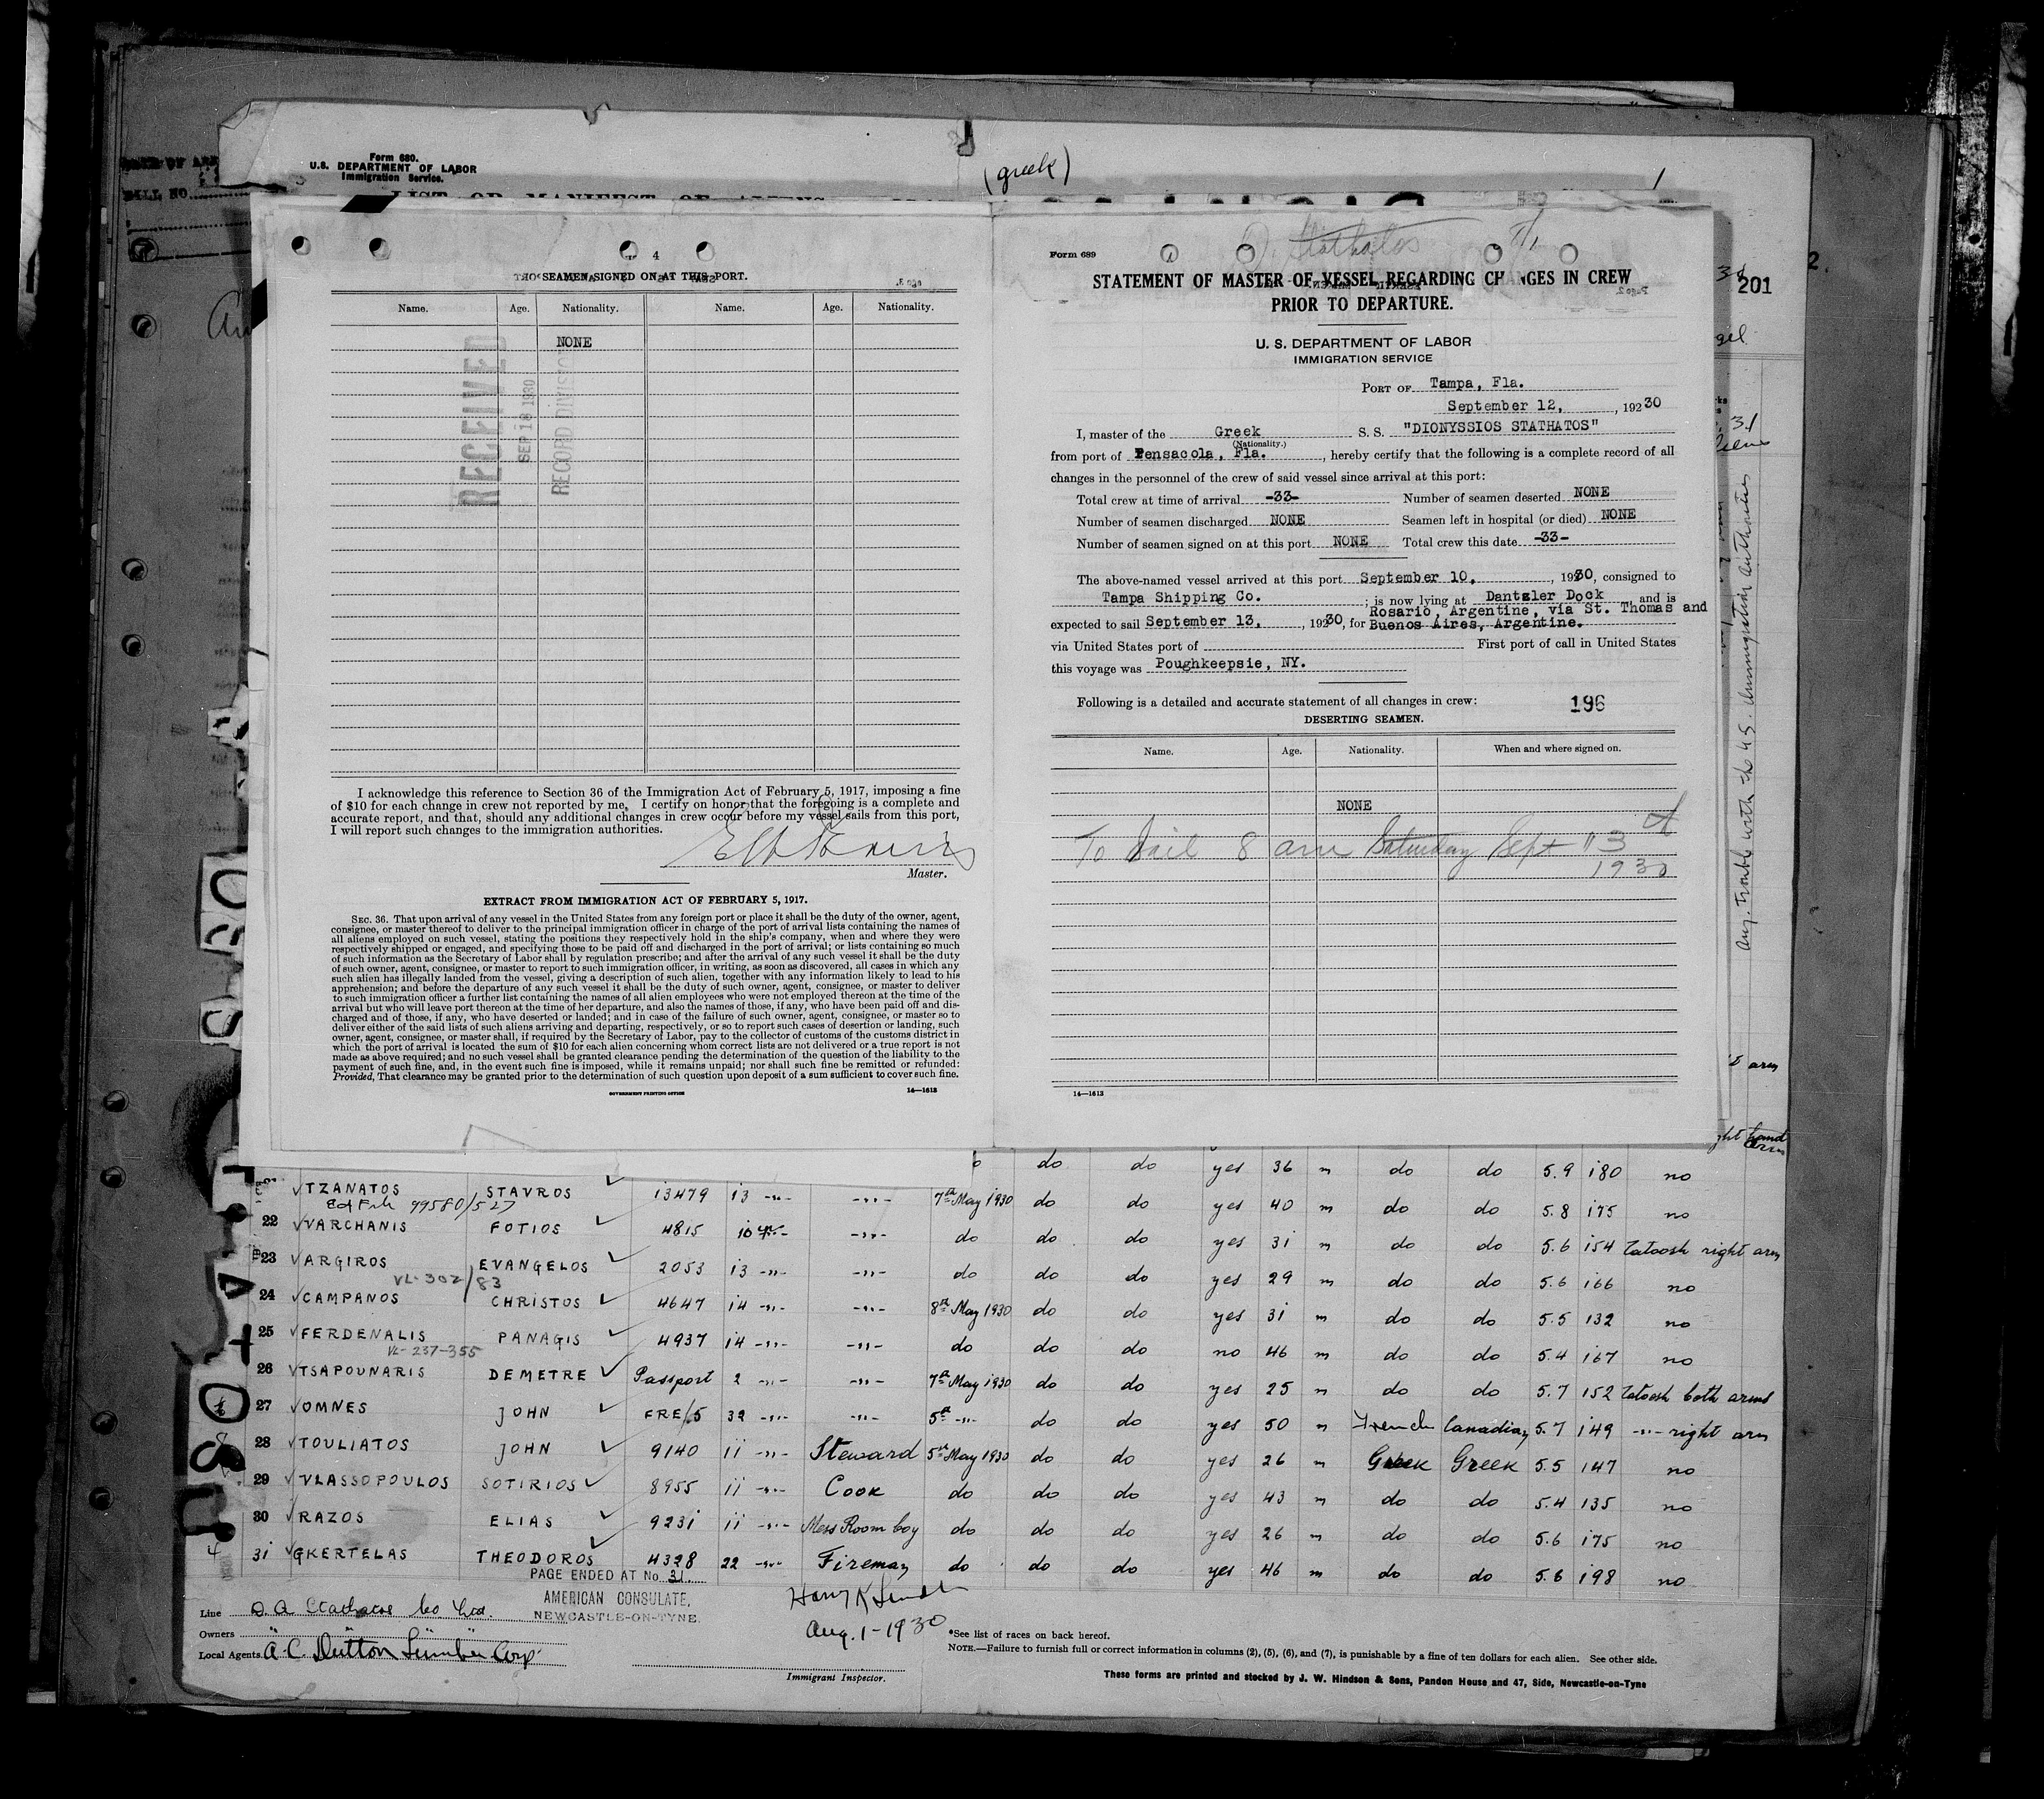 Form 680.
U.S. DEPARTMENT OF LABOR
Immigration Service.
(greek)
1
4
SEAMEN SIGNED ON AT THIS PORT.
Name. Age. Nationality. Name. Age. Nationality.
NONE
RECEIVED
SEP 18 1930
RECORD DIVISION
I acknowledge this reference to Section 36 of the Immigration Act of February 5, 1917, imposing a fine
of $10 for each change in crew not reported by me. I certify on honor that the foregoing is a complete and
accurate report, and that, should any additional changes in crew occur before my vessel sails from this port,
I will report such changes to the immigration authorities.
Master.
EXTRACT FROM IMMIGRATION ACT OF FEBRUARY 5, 1917.
SEC. 36. That upon arrival of any vessel in the United States from any foreign port or place it shall be the duty of the owner, agent,
consignee, or master thereof to deliver to the principal immigration officer in charge of the port of arrival lists containing the names of
all aliens employed on such vessel, stating the positions they respectively hold in the ship's company, when and where they were
respectively shipped or engaged, and specifying those to be paid off and discharged in the port of arrival; or lists containing so much
of such information as the Secretary of Labor shall by regulation prescribe; and after the arrival of any such vessel it shall be the duty
of such owner, agent, consignee, or master to report to such immigration officer, in writing, as soon as discovered, all cases in which any
such alien has illegally landed from the vessel, giving a description of such alien, together with any information likely to lead to his
apprehension; and before the departure of any such vessel it shall be the duty of such owner, agent, consignee, or master to deliver
to such immigration officer a further list containing the names of all alien employees who were not employed thereon at the time of the
arrival but who will leave port thereon at the time of her departure, and also the names of those, if any, who have been paid off and dis-
charged and of those, if any, who have deserted or landed; and in case of the failure of such owner, agent, consignee, or master so to
deliver either of the said lists of such aliens arriving and departing, respectively, or so to report such cases of desertion or landing, such
owner, agent, consignee, or master shall, if required by the Secretary of Labor, pay to the collector of customs of the customs district in
which the port of arrival is located the sum of $10 for each alien concerning whom correct lists are not delivered or a true report is not
made as above required; and no such vessel shall be granted clearance pending the determination of the question of the liability to the
payment of such fine, and, in the event such fine is imposed, while it remains unpaid; nor shall such fine be remitted or refunded:
Provided, That clearance may be granted prior to the determination of such question upon deposit of a sum sufficient to cover such fine.
GOVERNMENT PRINTING OFFICE 14—1613
D. Stathatos
Form 689
STATEMENT OF MASTER OF VESSEL REGARDING CHANGES IN CREW
PRIOR TO DEPARTURE.
U. S. DEPARTMENT OF LABOR
IMMIGRATION SERVICE
PORT OF Tampa, Fla.
September 12, , 19230
I, master of the Greek S. S. "DIONYSSIOS STATHATOS"
(Nationality.)
from port of Pensacola, Fla. , hereby certify that the following is a complete record of all
changes in the personnel of the crew of said vessel since arrival at this port:
Total crew at time of arrival -33- Number of seamen deserted NONE
Number of seamen discharged NONE Seamen left in hospital (or died) NONE
Number of seamen signed on at this port NONE Total crew this date -33-
The above-named vessel arrived at this port September 10, , 19230, consigned to
Tampa Shipping Co. ; is now lying at Dantzler Dock and is
Rosario, Argentine, via St. Thomas and
expected to sail September 13, , 19230, for Buenos Aires, Argentine.
via United States port of First port of call in United States
this voyage was Poughkeepsie, NY.
Following is a detailed and accurate statement of all changes in crew: 196
DESERTING SEAMEN.
Name. Age. Nationality. When and where signed on.
NONE
To Sail 8 am Saturday Sept 13th
1930
14—1613
201
Any trouble with the U.S. Immigration Authorities
do do yes 36 m do do 5.9 180 no
TZANATOS STAVROS 13479 13 -"- -"- 7th May 1930 do do yes 40 m do do 5.8 175 no
99580/527
22 VARCHANIS FOTIOS 4815 10 -"- -"- do do do yes 31 m do do 5.6 154 Tatoosh right arm
23 VARGIROS EVANGELOS 2053 13 -"- -"- do do do yes 29 m do do 5.6 166 no
VL-302/83
24 CAMPANOS CHRISTOS 4647 14 -"- -"- 8th May 1930 do do yes 31 m do do 5.5 132 no
25 FERDENALIS PANAGIS 4937 14 -"- -"- do do do no 46 m do do 5.4 167 no
VL-237-355
26 TSAPOUNARIS DEMETRE Passport 2 -"- -"- 7th May 1930 do do yes 25 m do do 5.7 152 Tatoosh both arms
27 OMNES JOHN FRE/.5 32 -"- -"- 5th -"- do do yes 50 m French Canadian 5.7 149 -"- right arm
28 TOULIATOS JOHN 9140 11 -"- Steward 5th May 1930 do do yes 26 m Greek Greek 5.5 147 no
29 VLASSOPOULOS SOTIRIOS 8955 11 -"- Cook do do do yes 43 m do do 5.4 135 no
30 RAZOS ELIAS 9231 11 -"- Mess Room boy do do do yes 26 m do do 5.6 175 no
31 GKERTELAS THEODOROS 4328 22 -"- Fireman do do do yes 46 m do do 5.6 198 no
PAGE ENDED AT No 31
AMERICAN CONSULATE,
NEWCASTLE-ON-TYNE.
Aug. 1-1930
Line
Owners
Local Agents A. C. Dutton Lumber Corp.
Immigrant Inspector.
*See list of races on back hereof.
NOTE.—Failure to furnish full or correct information in columns (2), (5), (6), and (7), is punishable by a fine of ten dollars for each alien. See other side.
These forms are printed and stocked by J. W. Hindson & Sons, Pandon House and 47, Side, Newcastle-on-Tyne